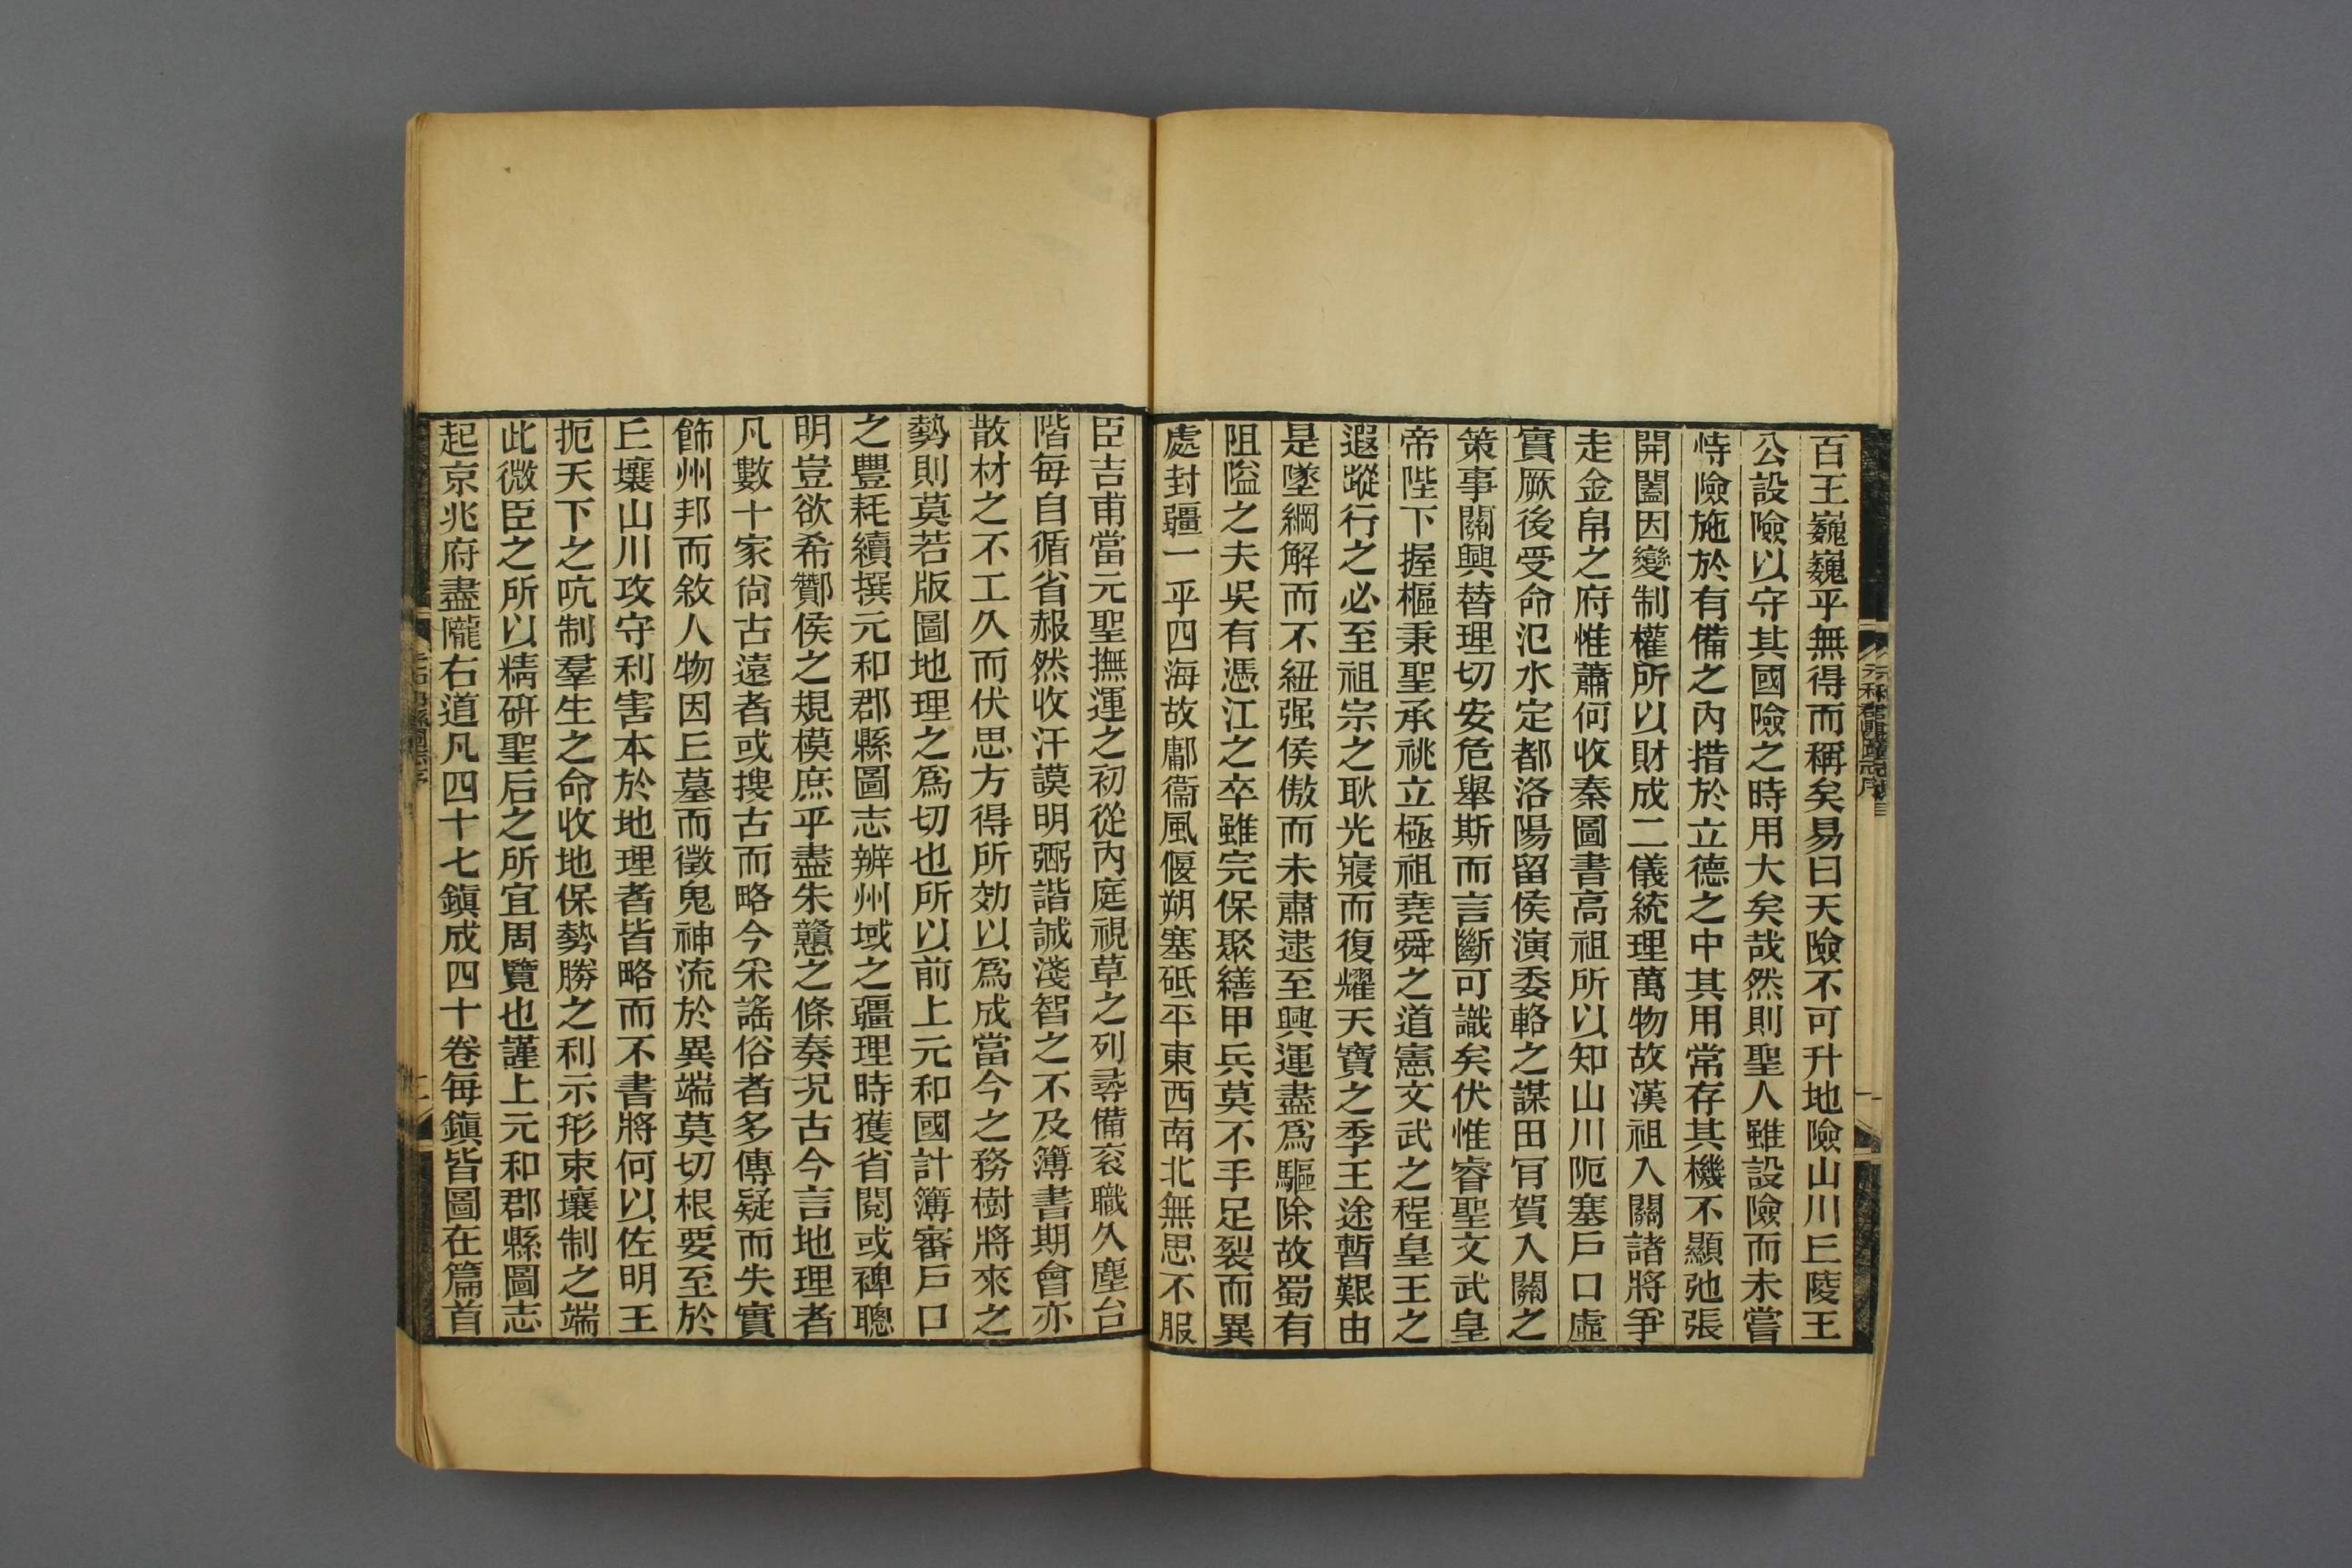 百王巍巍乎無得而稱矣易曰天險不可升地險山川𠀉陵王
公設險以守其國險之時用大矣哉然則聖人雖設險而未嘗
恃險施於有備之內措於立德之中其用常存其機不顯弛張
開闔因變制權所以財成二儀統理萬物故漢祖入關諸將爭
走金帛之府惟蕭何收秦圖書高祖所以知山川阨塞戶口虛
實厥後受命氾水定都洛陽留侯演委輅之謀田肎賀入關之
策事關興替理切安危舉斯而言斷可識矣伏惟睿聖文武皇
帝陛下握樞秉聖承祧立極祖堯舜之道憲文武之程皇王之
遐蹤行之必至祖宗之耿光寢而復耀天寶之季王途暫艱由
是墜綱解而不紐强侯傲而未肅逮至興運盡爲驅除故蜀有
阻隘之夫吳有憑江之卒雖完保聚繕甲兵莫不手足裂而異
處封疆一乎四海故鄘衞風偃朔塞砥平東西南北無思不服
臣吉甫當元聖撫運之初從內庭視草之列尋備衮職久塵台
階每自循省赧然收汗謨明弼諧誠淺智之不及簿書期會亦
散材之不工久而伏思方得所効以爲成當今之務樹將來之
勢則莫若版圖地理之爲切也所以前上元和國計簿審戶口
之豐耗續撰元和郡縣圖志辨州域之疆理時獲省閱或裨聰
明豈欲希酇侯之規模庶乎盡朱贛之條奏況古今言地理者
凡數十家尙古遠者或搜古而略今采謠俗者多傳疑而失實
飾州邦而敘人物因𠀉墓而徵鬼神流於異端莫切根要至於
𠀉壤山川攻守利害本於地理者皆略而不書將何以佐明王
扼天下之吭制羣生之命收地保勢勝之利示形束壤制之端
此微臣之所以精硏聖后之所宜周覽也謹上元和郡縣圖志
起京兆府盡隴右道凡四十七鎭成四十卷每鎭皆圖在篇首